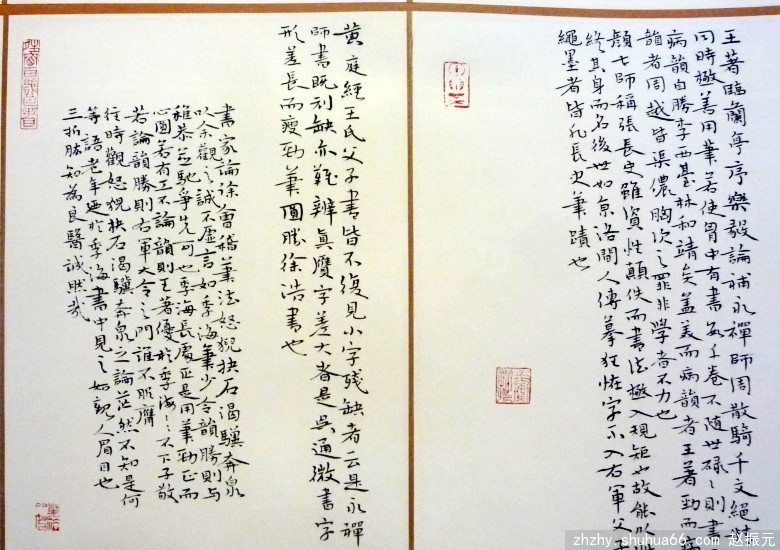 王著臨蘭亭序樂毅論補永禪師周散騎千文絕妙
同時極善用筆若使胷中有書數千卷不隨世碌々則書不
病韻自勝李西臺林和靖矣蓋美而病韻者王著勁而病
韻者周越皆渠儂胸次之罪非學者不力也
顛七師稱張長史雖資性顛佚而書法極入規矩也故能以此
終其身而名後世如京洛間人傳摹狂怪字不入右軍父子
繩墨者皆非長史筆蹟也
黄庭經王氏父子書皆不復見小字殘缺者云是永禪
師書既刓缺亦難辨真贋字差大者是吳通微書字
形差長而瘦勁筆圓勝徐浩書也
書家論徐會稽筆法怒猊抉石渴驥奔泉
以余觀之誠不虛言如季海筆少令韻勝則與
稚恭並馳爭先可也季海長處正是用筆勁正而
心圓若有工不論韻則王著優於季海々不下子敬
若論韻勝則右軍大令之門誰不服膺
往時觀怒猊抉石渴驥奔泉之論茫然不知是何
等語老年乃於季海書中見之如觀人眉目也
三折肱知為良醫誠然哉
zhzhy.shuhua66.com 赵振元